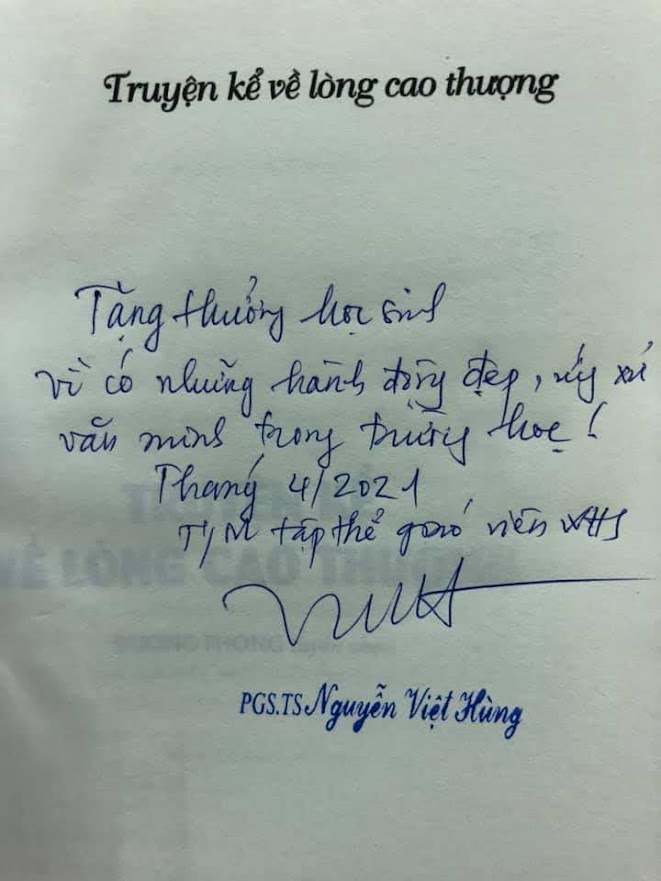 Truyện kể về lòng cao thượng
Tặng thưởng học sinh
vì có những hành động đẹp, ứng xử
văn minh trong trường học!
Tháng 4/2021
T/M tập thể giáo viên
PGS.TS Nguyễn Việt Hùng
LÒNG CAO THƯỢNG